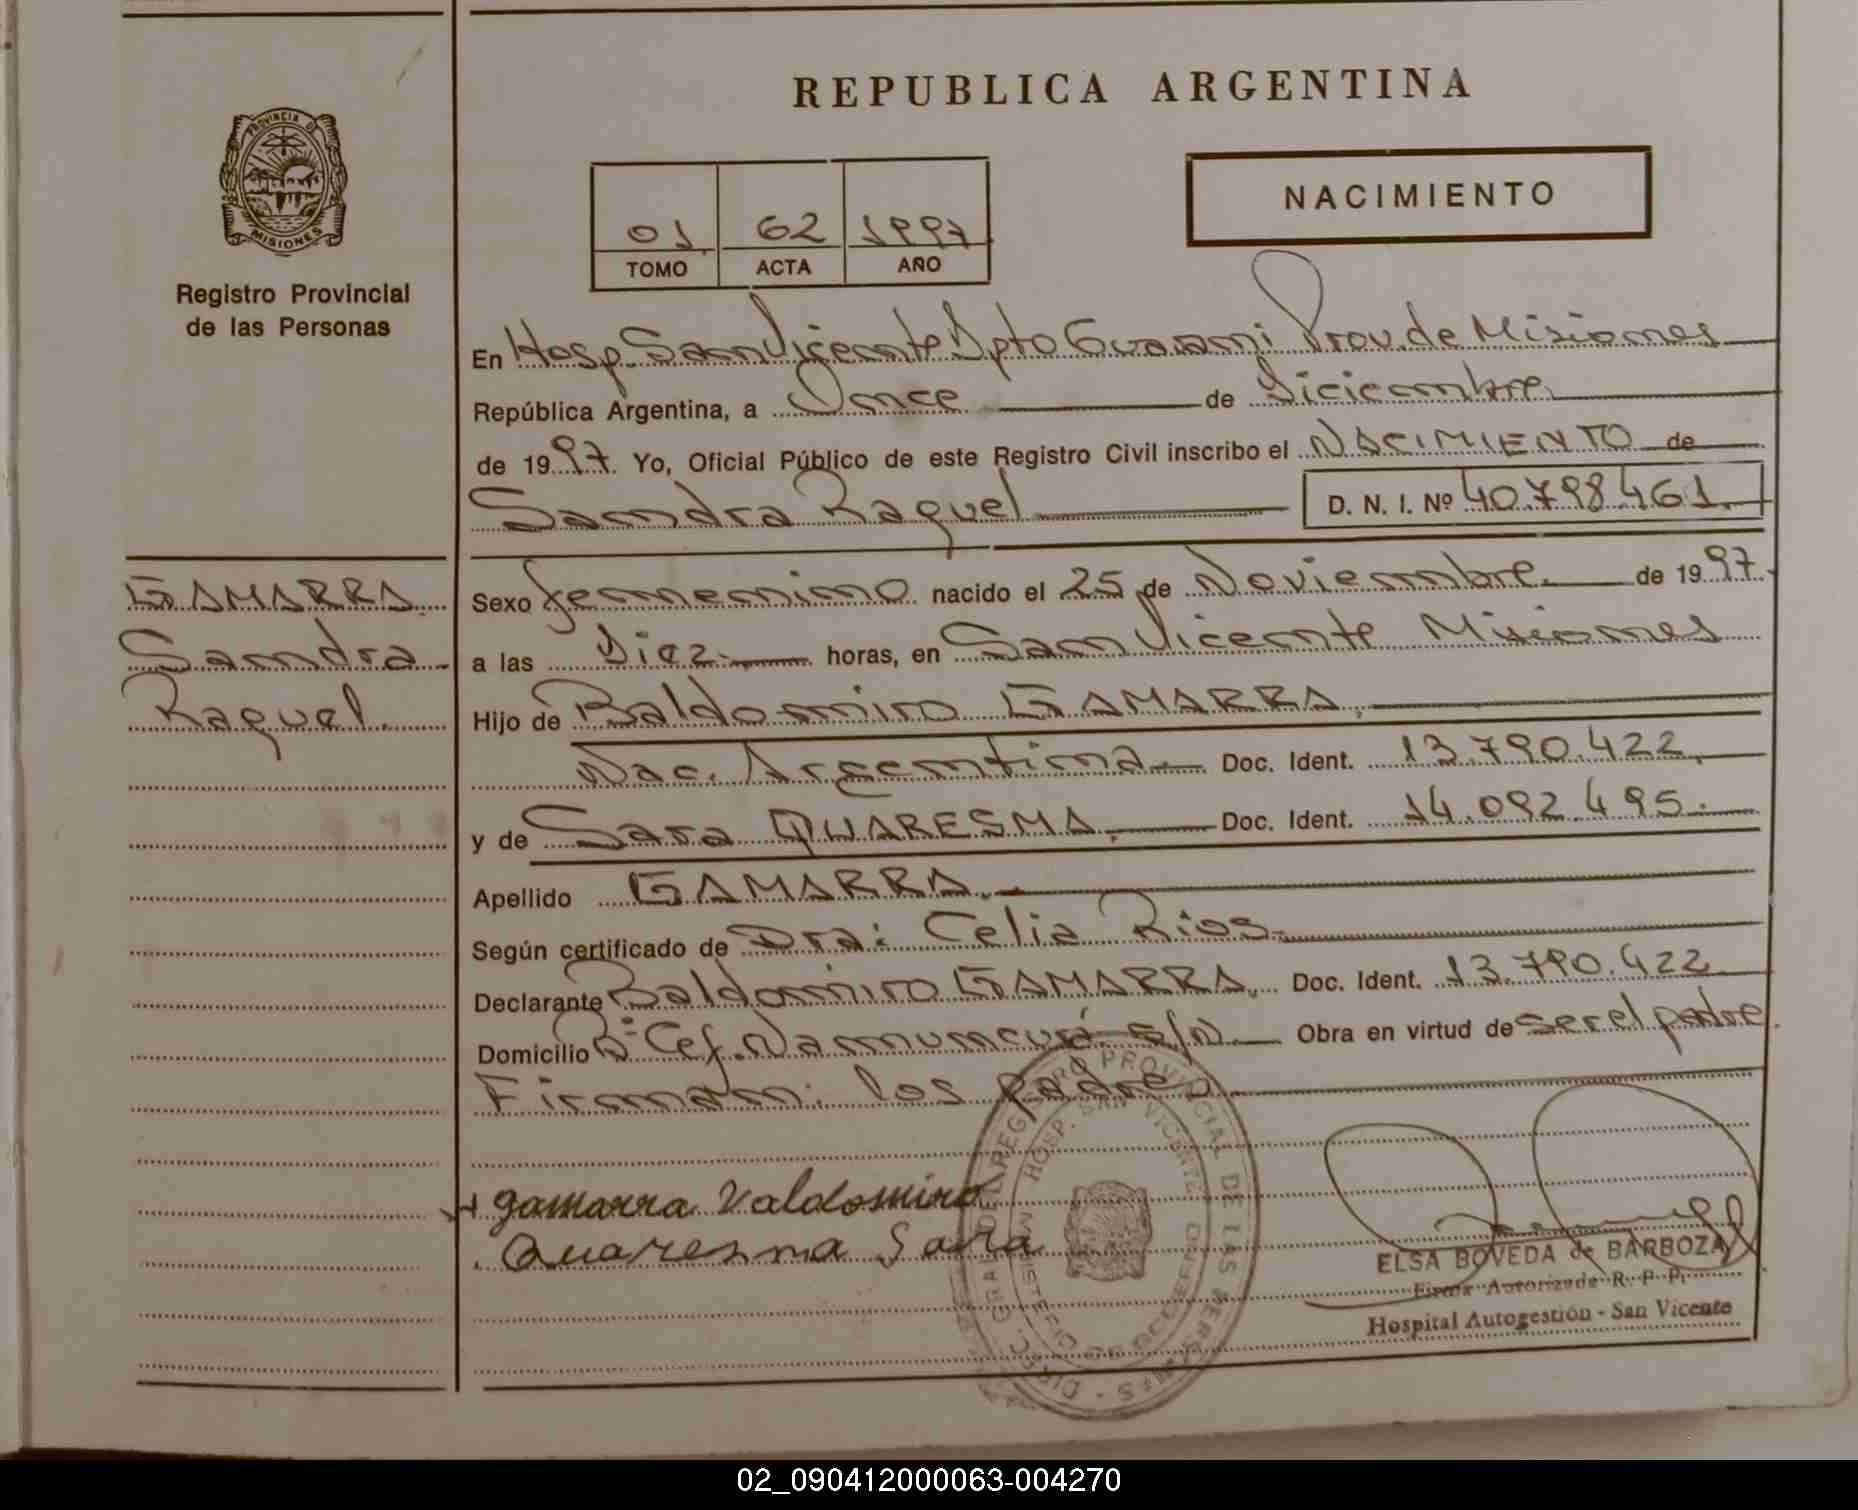 REPUBLICA ARGENTINA
PROVINCIA DE
MISIONES
Registro Provincial
de las Personas
01 62 1997
TOMO ACTA AÑO
NACIMIENTO
En Hosp. San Vicente Dpto Guarani Prov. de Misiones
República Argentina, a Once de Diciembre
de 1997. Yo, Oficial Público de este Registro Civil inscribo el NACIMIENTO de
Sandra Raquel D. N. I. Nº 40.798.461.
GAMARRA
Sandra
Raquel.
Sexo femenino nacido el 25 de Noviembre de 1997.
a las Diez horas, en San Vicente Misiones
Hijo de Baldomiro GAMARRA.
Nac. Argentina Doc. Ident. 13.790.422
y de Sara QUARESMA. Doc. Ident. 14.092.495.
Apellido GAMARRA.
Según certificado de Dra: Celia Rios.
Declarante Baldomiro GAMARRA. Doc. Ident. 13.790.422
Domicilio Bº Cef. Namuncurá s/N. Obra en virtud de ser el padre.
Firman: los padres
Gamarra Valdomiro
Quaresma Sara
REGISTRO PROVINCIAL DE LAS PERSONAS
HOSP. SAN VICENTE
ELSA BOVEDA de BARBOZA
Firma Autorizada R. P. P.
Hospital Autogestión - San Vicente
02_090412000063-004270